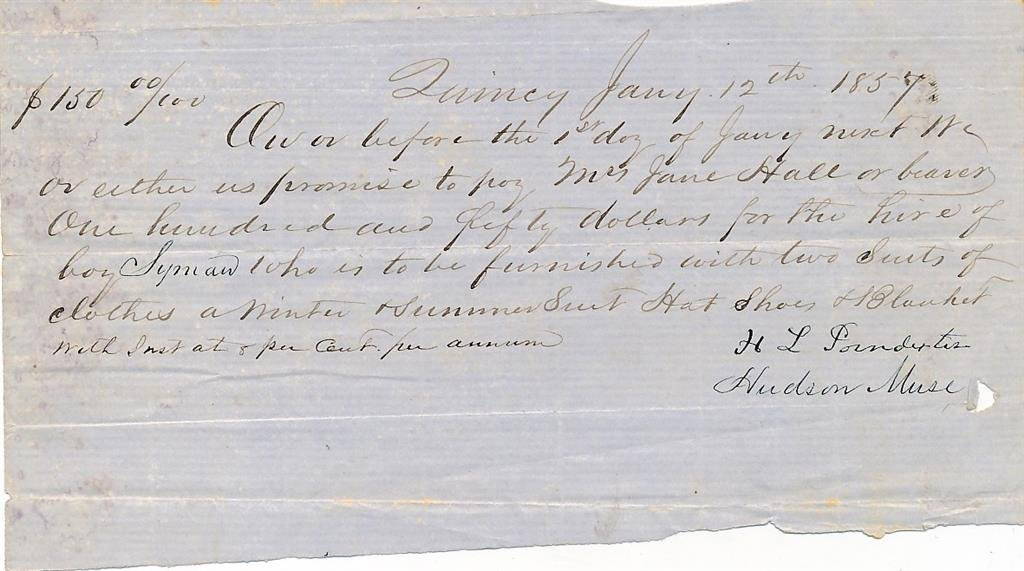 $150 00/100 Quincy Jany. 12th 1857
On or before the 1st day of Jany next We
or either us promise to pay Mrs Jane Hall or bearer
One hundred and fifty dollars for the hire of
boy Lyman who is to be furnished with two Suits of
clothes a Winter & Summer Suit Hat Shoes & Blanket
With Inst at 8 per Cent. per annum
H L Poindexter
Hudson Muse